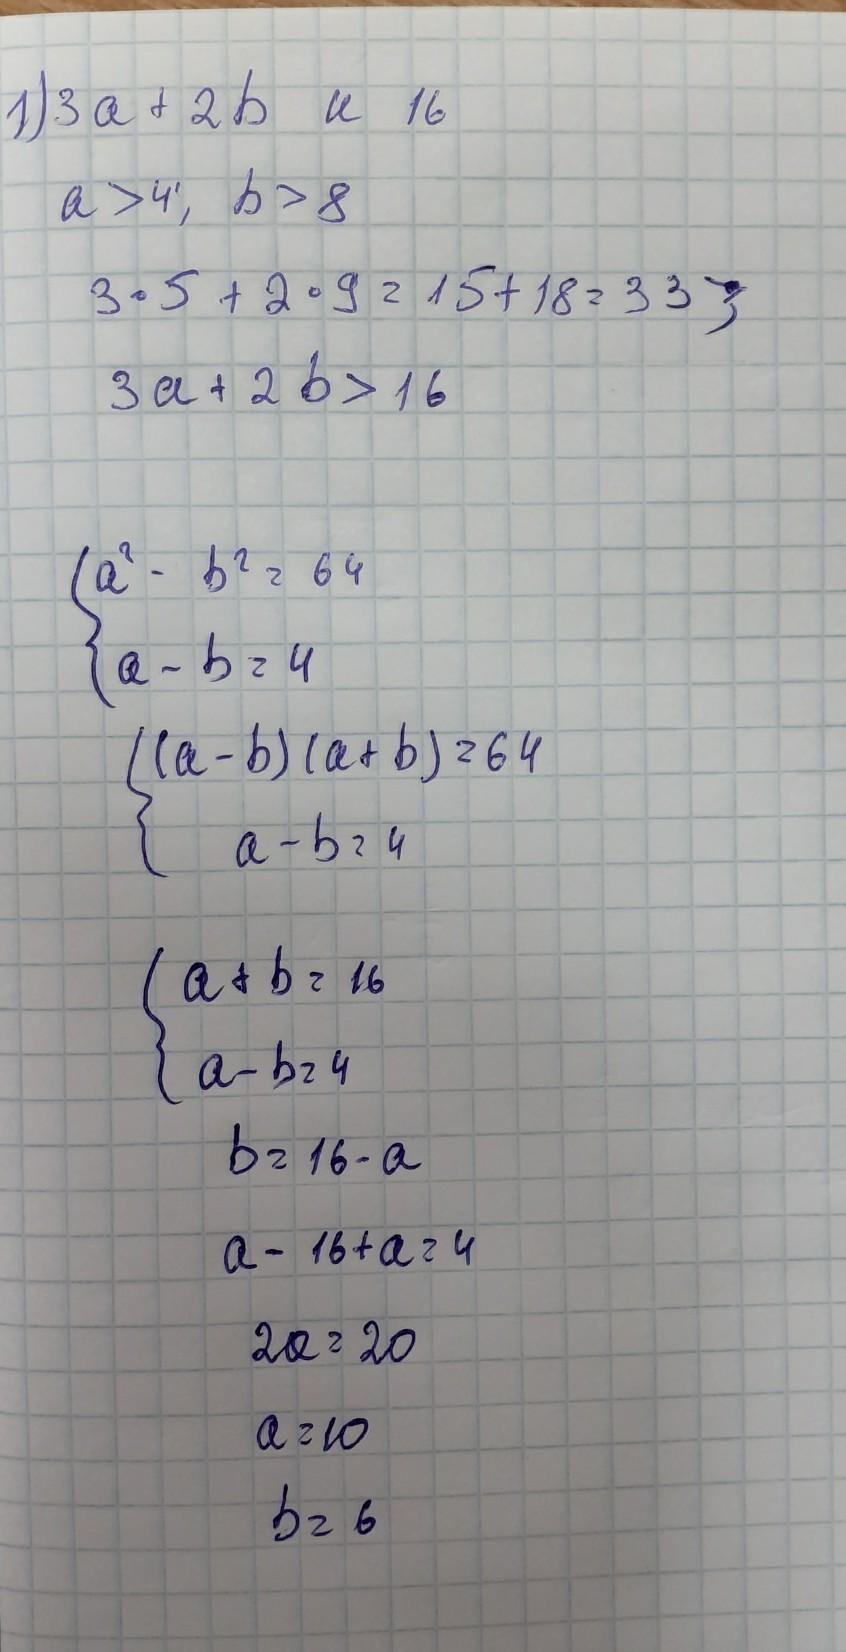 1) 3a + 2b и 16
a > 4, b > 8
3 • 5 + 2 • 9 = 15 + 18 = 33 ;
3a + 2b > 16
a² - b² = 64
a - b = 4
(a - b)(a + b) = 64
a - b = 4
a + b = 16
a - b = 4
b = 16 - a
a - 16 + a = 4
2a = 20
a = 10
b = 6